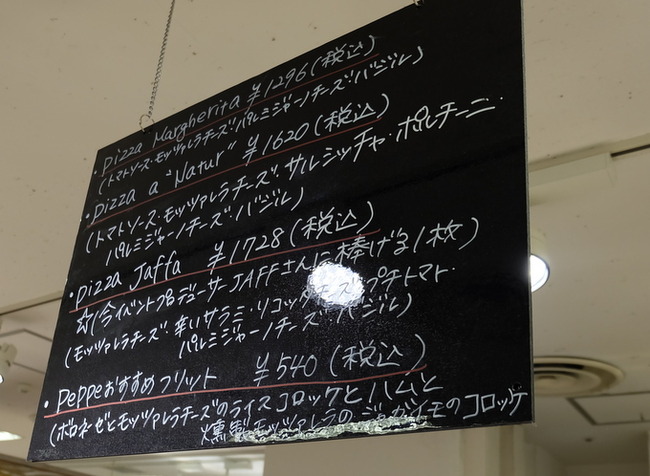 ・Pizza Margherita ¥1296(税込)
(トマトソース・モッツァレラチーズ・パルミジャーノチーズ・バジル)
・Pizza a "Natur" ¥1620(税込)
(トマトソース・モッツァレラチーズ、サルシッチャ・ポルチーニ・
パルミジャーノチーズ・バジル)
・Pizza Jaffa ¥1728(税込)
☆(今イベントプロデューサーJAFFさんに捧げる1枚)
(モッツァレラチーズ 辛いサラミ・リコッタチーズ・プチトマト・
パルミジャーノチーズ・バジル)
・Peppeおすすめフリット ¥540(税込)
(ボロネーゼとモッツァレラチーズのライスコロッケとハムと
燻製モッツァレラのジャガイモのコロッケ